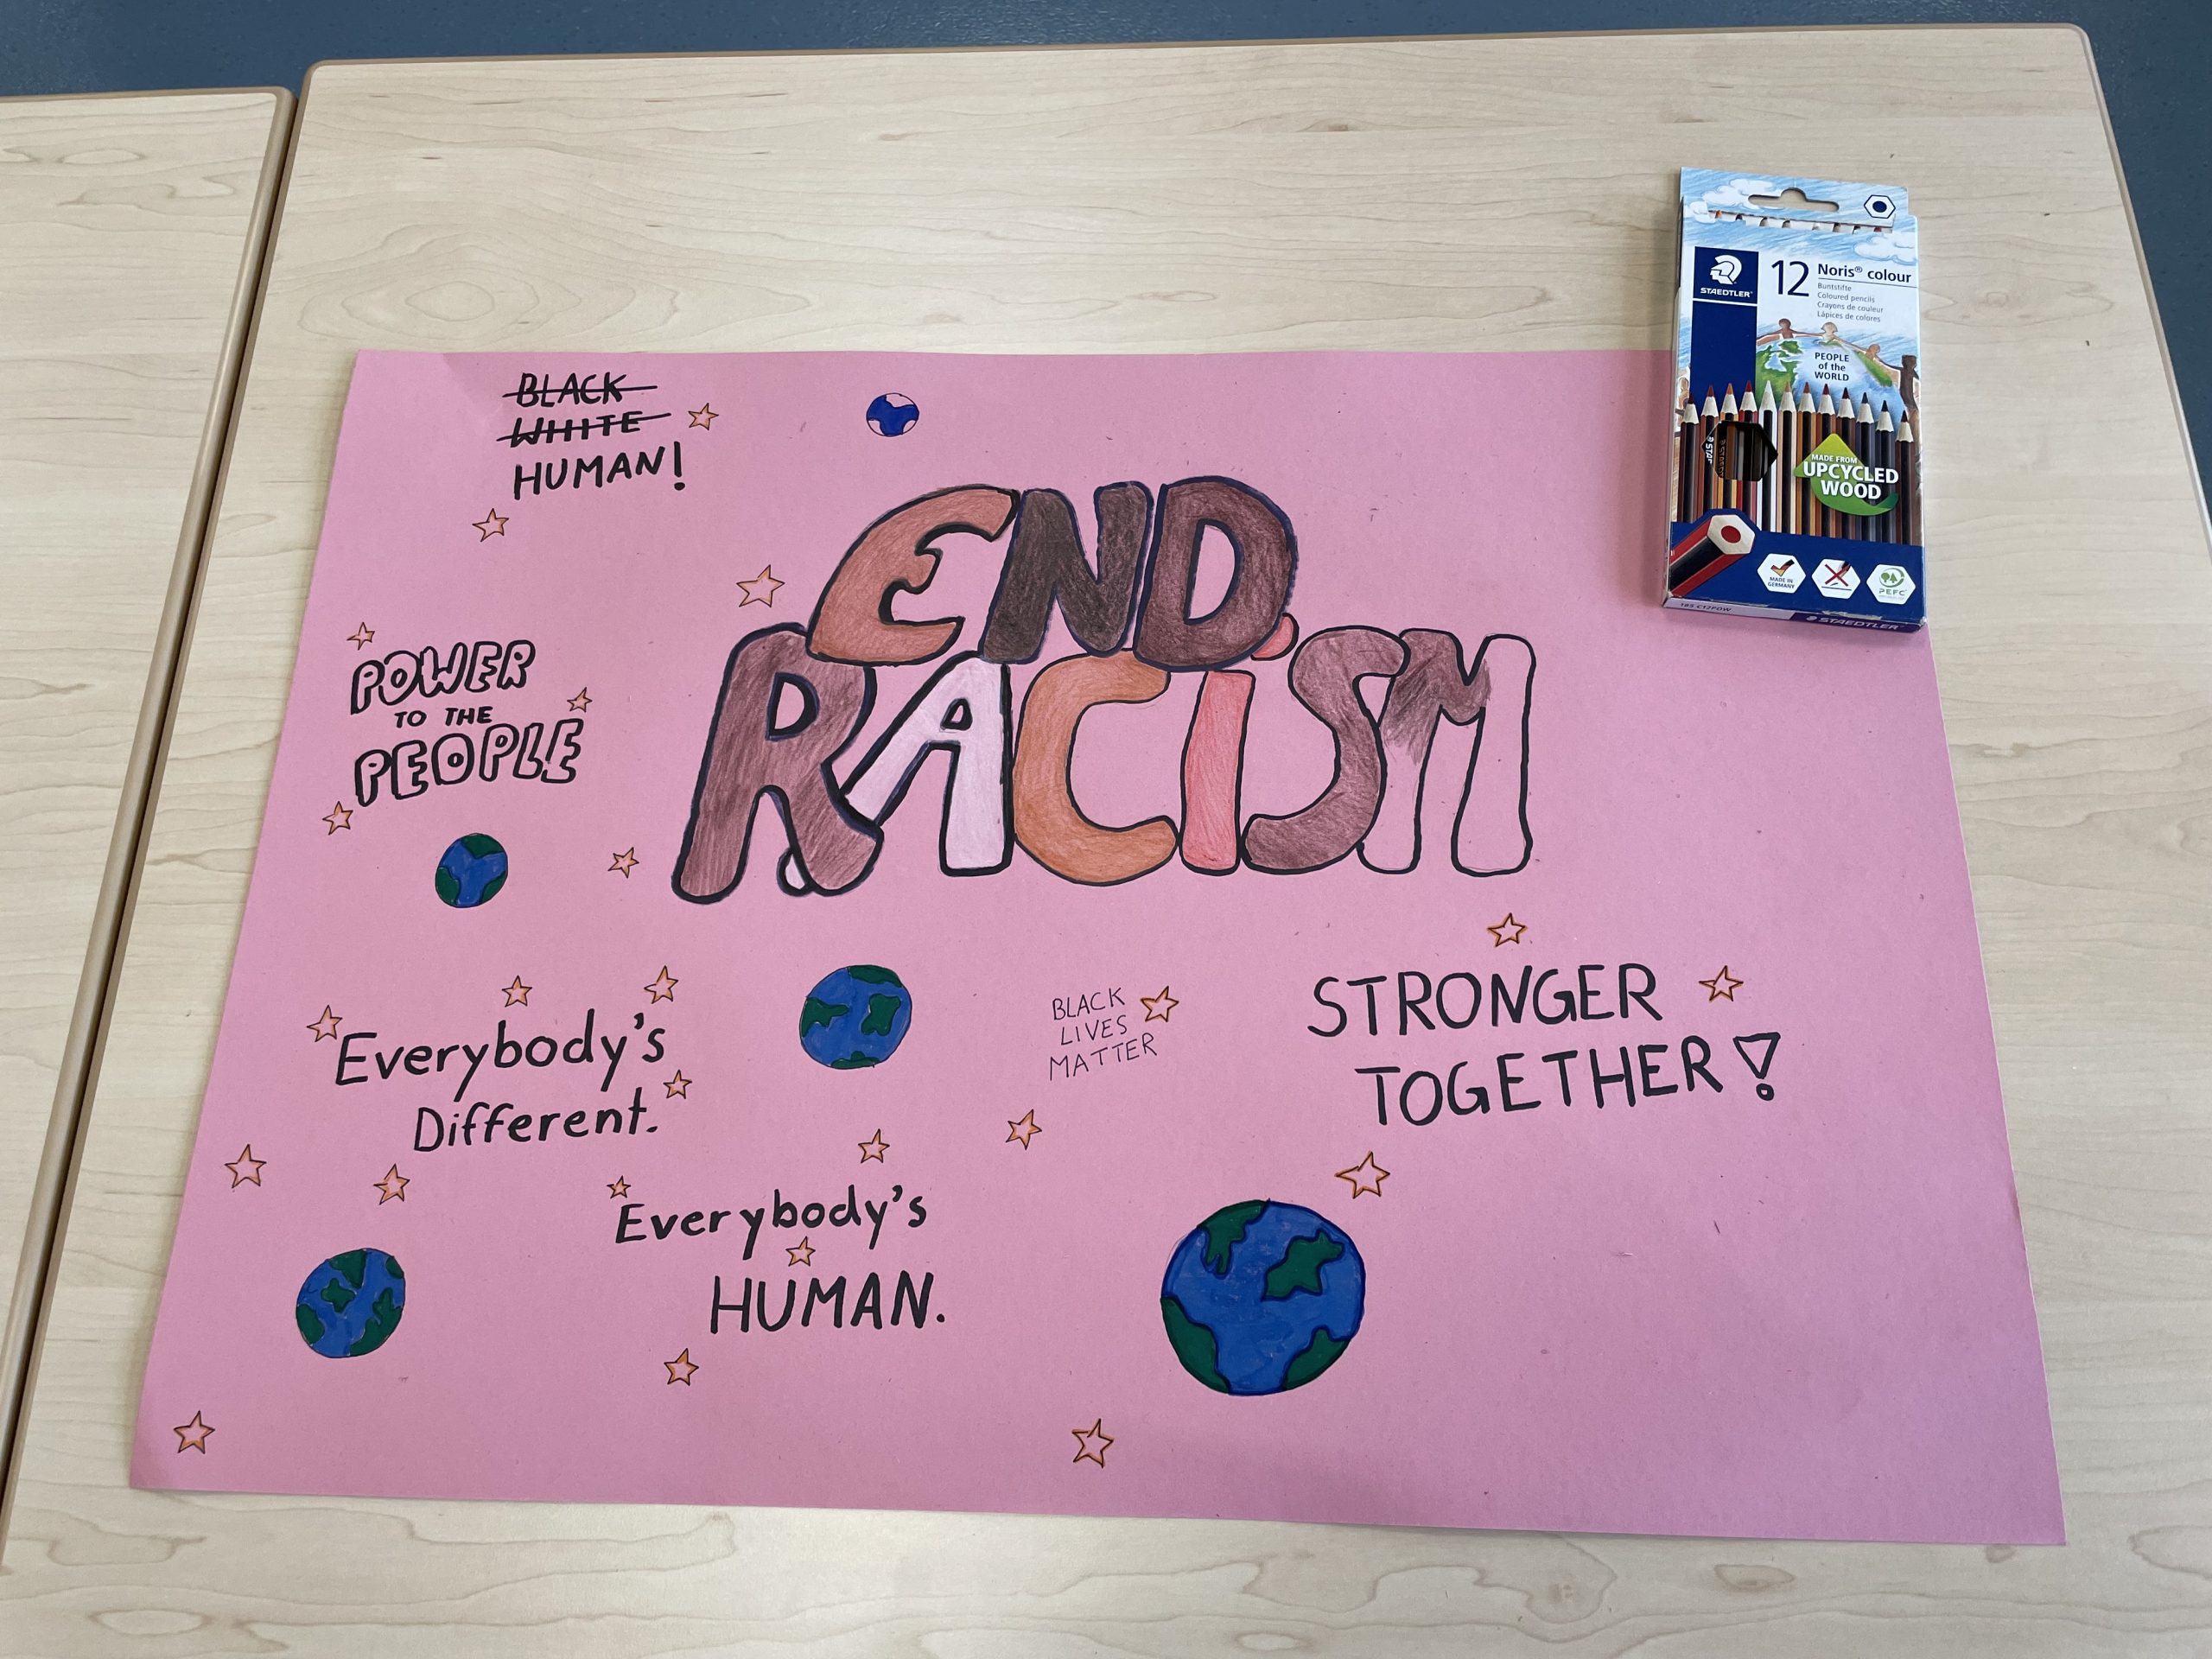 BLACK
WHITE
HUMAN!
END
RACISM
POWER
TO THE
PEOPLE
Everybody's
Different.
BLACK
LIVES
MATTER
STRONGER
TOGETHER!
Everybody's
HUMAN.
STAEDTLER
12 Noris® colour
Buntstifte
Coloured pencils
Crayons de couleur
Lápices de colores
PEOPLE
of the
WORLD
MADE FROM
UPCYCLED
WOOD
MADE IN
GERMANY
PEFC
STAEDTLER